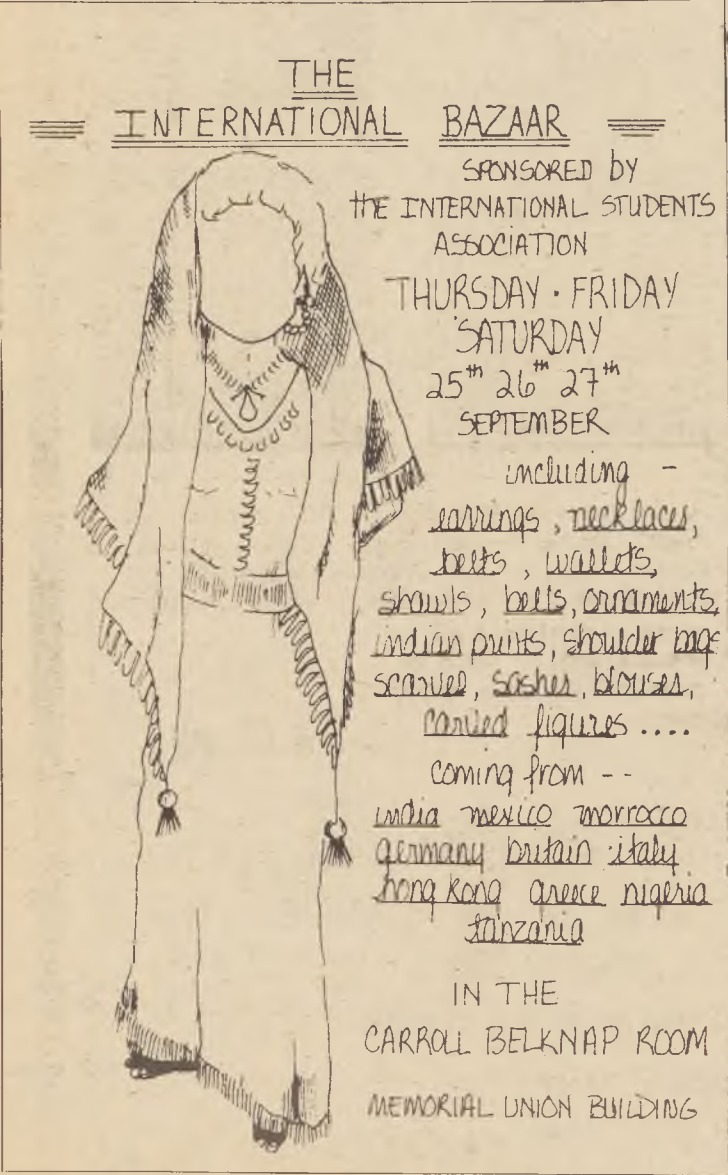 THE
INTERNATIONAL BAZAAR
SPONSORED by
thE INTERNATIONAL STUDENTS
ASSOCIATION
THURSDAY · FRIDAY
SATURDAY
25th 26th 27th
SEPTEMBER
including -
earrings, necklaces,
belts, wallets,
shawls, belts, ornaments,
indian prints, shoulder bags
scarves, sashes, blouses,
carved figures ....
coming from --
india mexico morrocco
germany britain italy
hong kong greece nigeria
tanzania
IN THE
CARROLL BELKNAP ROOM
MEMORIAL UNION BUILDING